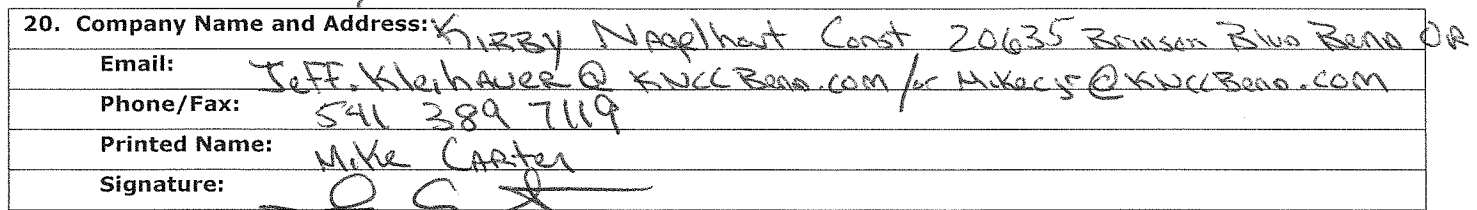 20. Company Name and Address: KIRBY Nagelhout Const 20635 Brinson Blvd Bend OR
Email: Jeff.Kleihauer@KNCCBend.com / or Mikec@KNCCBend.com
Phone/Fax: 541 389 7119
Printed Name: Mike Carter
Signature: